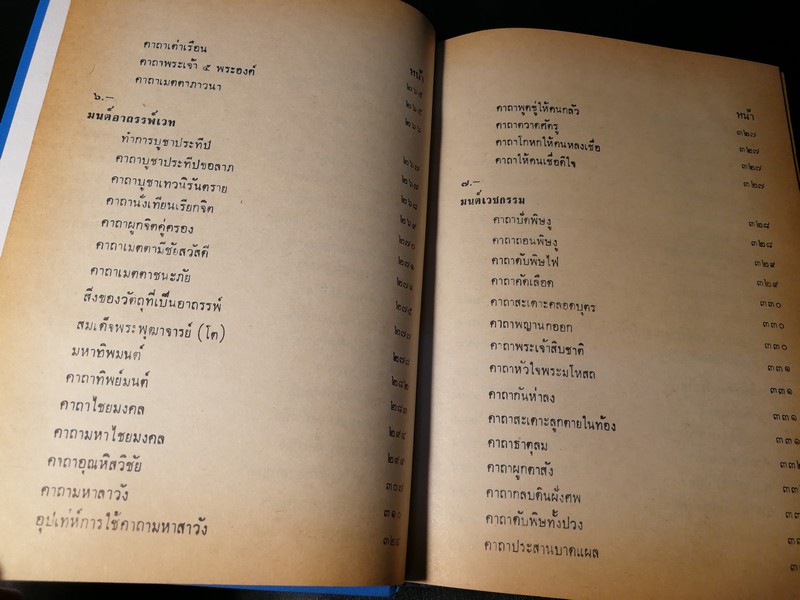 คาถาเต่าเรือน
คาถาพระเจ้า ๕ พระองค์
คาถาเมตตาภาวนา
๖.–
มนต์อาถรรพ์เวท
ทำการบูชาประทีป
คาถาบูชาประทีปขอลาภ
คาถาบูชาเทวนิรันตราย
คาถานั่งเทียนเรียกจิต
คาถาผูกจิตคู่ครอง
คาถาเมตตามีชัยสวัสดี
คาถาเมตตาชนะภัย
สิ่งของวัตถุที่เป็นอาถรรพ์
สมเด็จพระพุฒาจารย์ (โต)
มหาทิพมนต์
คาถาทิพย์มนต์
คาถาไชยมงคล
คาถามหาไชยมงคล
คาถาอุณหิสวิชัย
คาถามหาสาวัง
อุปเท่ห์การใช้คาถามหาสาวัง
หน้า
๒๖๕
๒๖๕
๒๖๖
๒๖๗
๒๖๗
๒๖๘
๒๖๙
๒๗๐
๒๗๑
๒๗๑
๒๗๕
๒๗๗
๒๗๘
๒๘๒
๒๘๓
๒๙๔
๒๙๙
๓๐๗
๓๑๐
๓๒๔
หน้า
คาถาพูดขู่ให้คนกลัว ๓๒๗
คาถาตวาดศัตรู ๓๒๗
คาถาโกหกให้คนหลงเชื่อ ๓๒๗
คาถาให้คนเชื่อดีใจ ๓๒๗
๗.–
มนต์เวชกรรม
คาถาปัดพิษงู ๓๒๘
คาถาถอนพิษงู ๓๒๘
คาถาดับพิษไฟ ๓๒๙
คาถาตัดเลือด ๓๒๙
คาถาสะเดาะคลอดบุตร ๓๓๐
คาถาพญานกออก ๓๓๐
คาถาพระเจ้าสิบชาติ ๓๓๐
คาถาหัวใจพระมโหสถ ๓๓๑
คาถากันห่าลง ๓๓๑
คาถาสะเดาะลูกตายในท้อง ๓๓๑
คาถาธาตุลม ๓๓๑
คาถาผูกตาสัง ๓๓๒
คาถากลบดินฝังศพ
คาถาดับพิษทั้งปวง
คาถาประสานบาดแผล